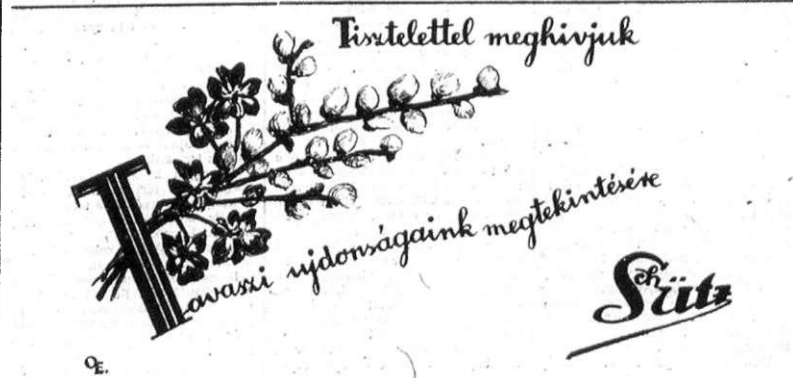 Tisztelettel meghivjuk
Tavaszi ujdonságaink megtekintésére
Schütz
OE.